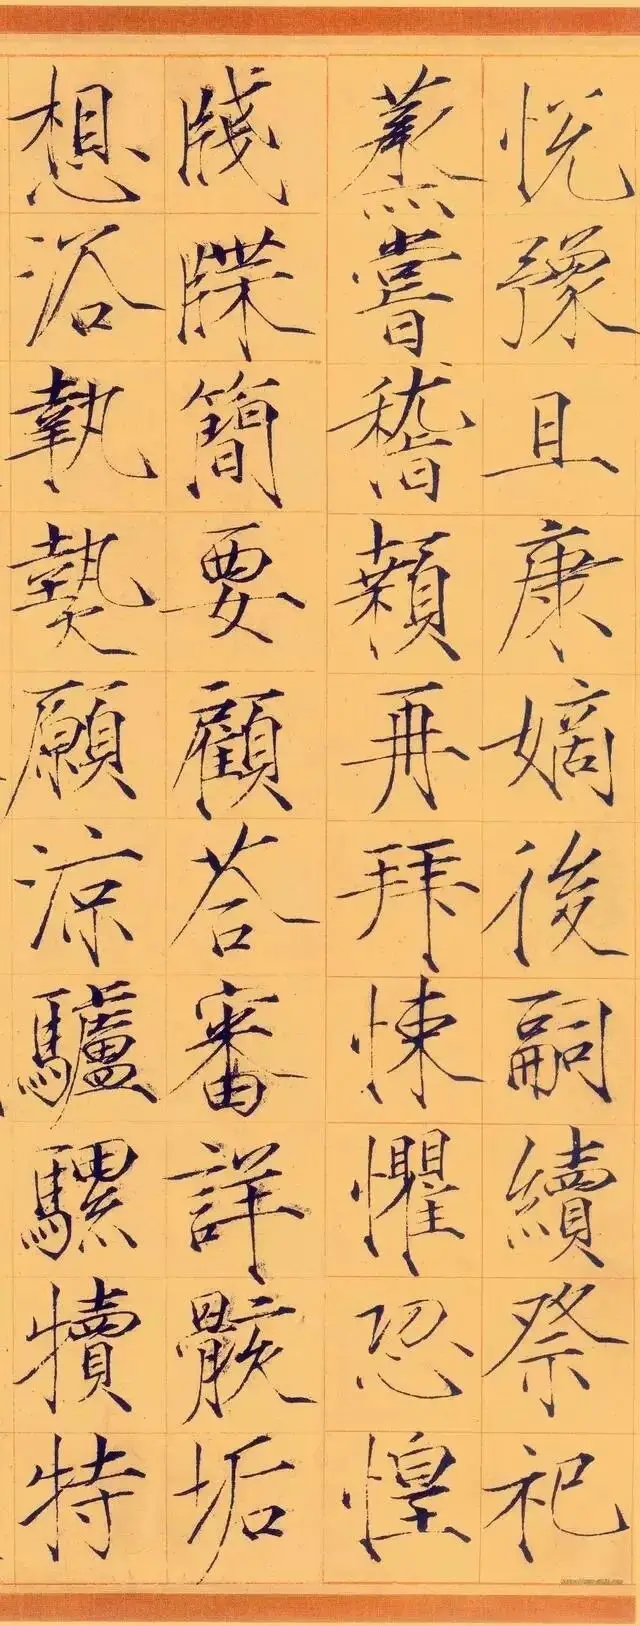 悦豫且康嫡後嗣續祭祀
蒸嘗稽顙再拜悚懼恐惶
牋牒簡要顧荅審詳骸垢
想浴執熱願涼驢騾犢特